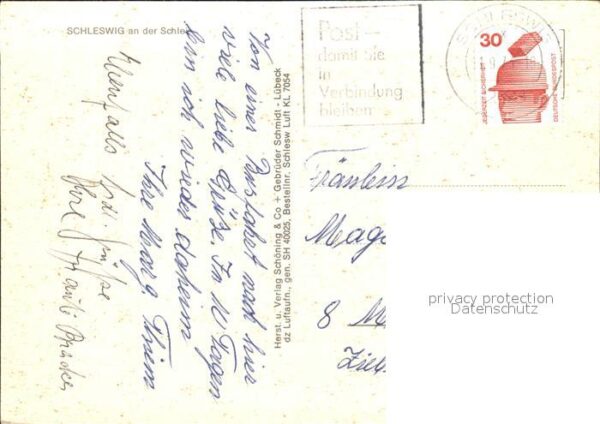 SCHLESWIG an der Schlei
Von einer Busfahrt nach hier
viele liebe Grüße. In 10 Tagen
bin ich wieder daheim
Ihre Marg. Thiem
Ebenfalls herzl. Grüße
Ihre
Herst. u. Verlag Schöning & Co + Gebrüder Schmidt - Lübeck
dz Luftaufn., gen. SH 40025, Bestellnr. Schlesw Luft KL 7054
Post –
damit Sie
in
Verbindung
bleiben
SCHLESWIG
30
JEDERZEIT SICHERHEIT
DEUTSCHE BUNDESPOST
Fräulein
Mag
8 M
Zie
privacy protection
Datenschutz